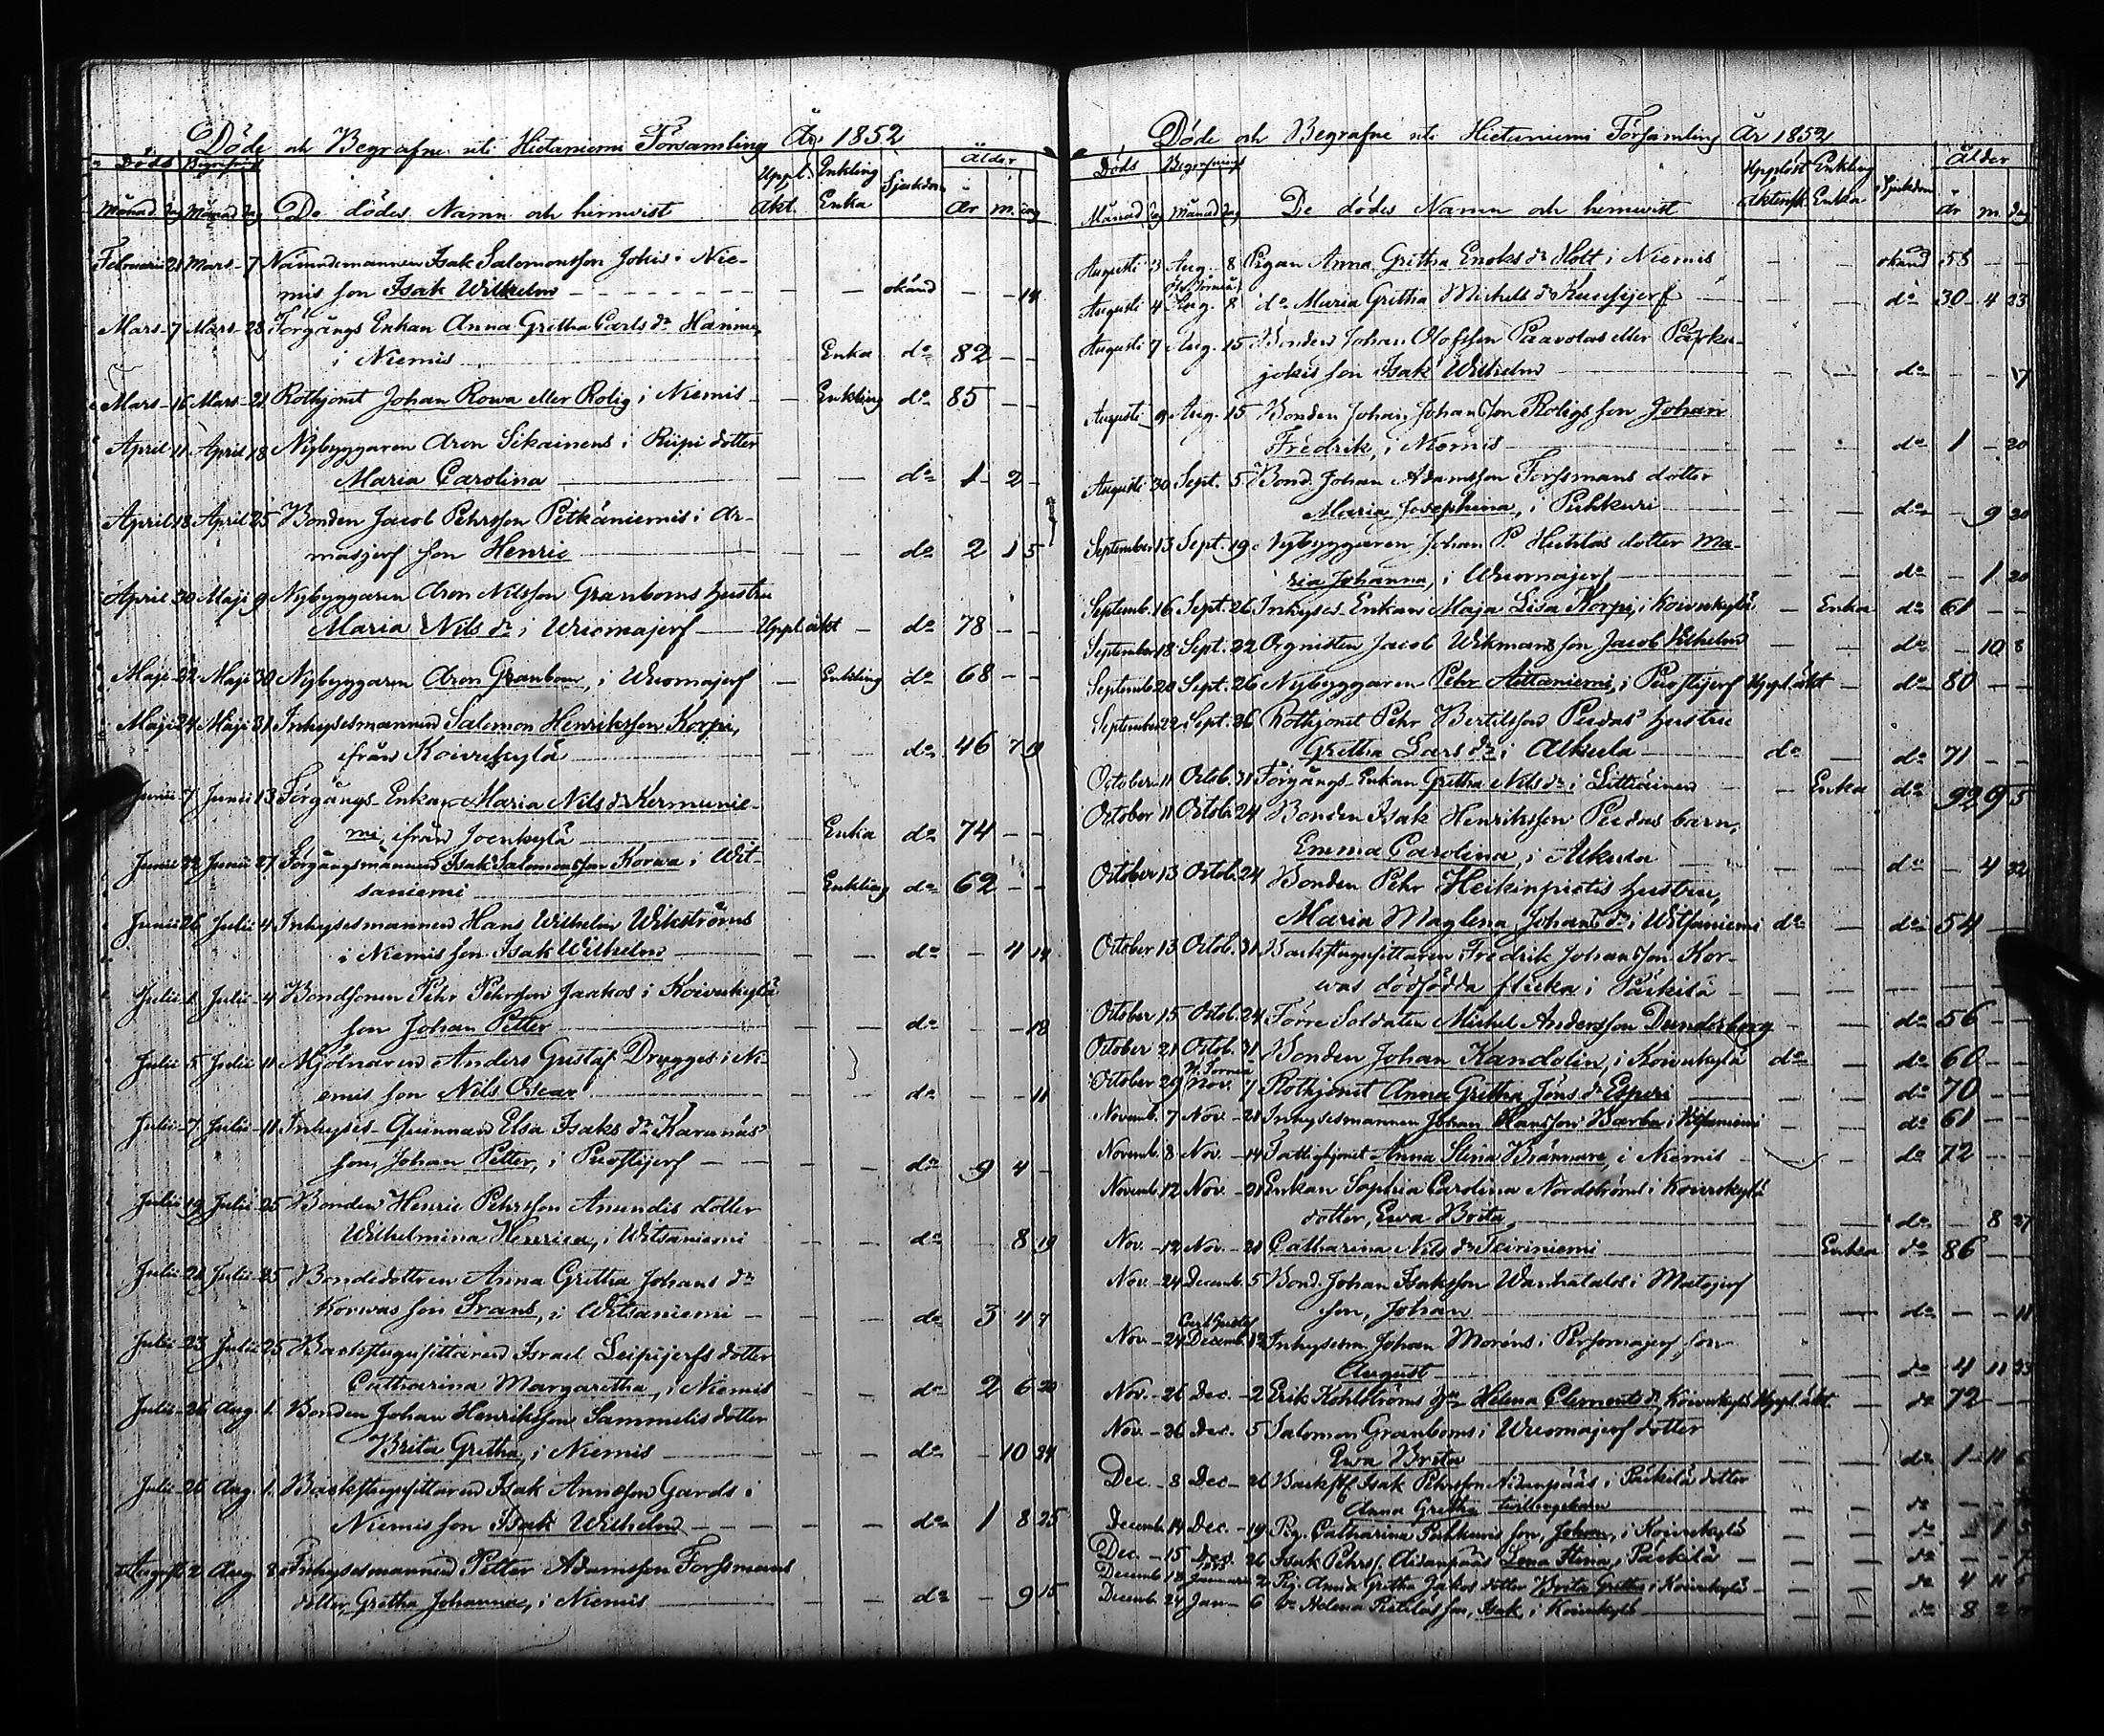 Döde och Begrafne uti Hietaniemi Församling År 1852
Döds Begrafnings Uppl. Enkling Sjukdom Ålder
Månad Dag Månad Dag De dödes Namn och hemvist Äkt. Enka År m. dag
Februarii 21 Mars 7 Nämndemannen Isak Salomonsson Jokis i Nie-
mis son Isak Wilhelm okänd - - 14
Mars 7 Mars 28 Förgångs Enkan Anna Gretha Carls dr Hannu
i Niemis Enka do 82 - -
Mars 16 Mars 21 Rothjonet Johan Rowa eller Rolig i Niemis Enkling do 85 - -
April 11 April 18 Nybyggaren Aron Sikainens i Riipi dotter
Maria Carolina do 1 2 -
April 18 April 25 Bonden Jacob Pehrsson Pitkäniemis i Ar-
masjerf son Henric do 2 1 5
April 30 Maji 9 Nybyggaren Aron Nilsson Granboms hustru
Maria Nils dr i Wuomajerf Uppl. äkt do 78 - -
Maji 22 Maji 30 Nybyggaren Aron Granbom, i Wuomajerf Enkling do 68 - -
Maji 24 Maji 31 Inhysesmannen Salomon Henriksson Korpi,
ifrån Koivukylä do 46 7 9
Junii 7 Junii 13 Förgångs Enkan Maria Nils dr Kermunie-
mi ifrån Joenkylä Enka do 74 - -
Junii 22 Junii 27 Förgångsmannen Isak Salomonsson Korwa i Wit-
saniemi Enkling do 62 - -
Junii 26 Julii 4 Inhysesmannen Hans Wilhelm Wikströms
i Niemis son Isak Wilhelm do - 4 14
Julii 1 Julii 4 Bondsonen Pehr Pehrsson Jaakos i Koivukylä
son Johan Petter do - - 12
Julii 5 Julii 11 Mjölnaren Anders Gustaf Drygges i Ni-
emis son Nils Oscar do - - 11
Julii 7 Julii 11 Inhyses Qvinnan Elsa Isaks dr Karunás
son, Johan Petter, i Puostijerf do 9 4 -
Julii 19 Julii 25 Bonden Henric Pehrsson Anundis dotter
Wilhelmina Henrica, i Witsaniemi do 8 19
Julii 21 Julii 25 Bondedottren Anna Gretha Johans dr
Korwas son Frans, i Witsaniemi do 3 4 7
Julii 23 Julii 25 Backstugusittaren Israel Leipijerfs dotter
Catharina Margaretha, i Niemis do 2 6 20
Julii 26 Aug. 1. Bonden Johan Henriksson Sammelis dotter
Brita Gretha, i Niemis do - 10 24
Julii 26 Aug. 1. Backstugusittaren Isak Ansson Gards i
Niemis son Isak Wilhelm do 1 8 25
Augusti 2 Aug. 8 Inhysesmannen Petter Adamsson Forssmans
dotter, Gretha Johanna, i Niemis do - 9 15
Döde och Begrafne uti Hietaniemi Församling År 1852
Döds Begrafnings Upplöst Enkling Sjukdom Ålder
Månad Dag Månad Dag De dödes Namn och hemvist Äktensk. Enka År m. dag
Augusti 3 Aug. 8 Pigan Anna Gretha Enoks dr Hott i Niemis okänd 55 - -
Öf. Torneå
Augusti 4 Aug. 8 do Maria Gretha Michels dr Kuusijerf do 30 4 23
Augusti 7 Aug. 15 Bonden Johan Olofsson Paavolas eller Parku-
jokis son Isak Wilhelm do - - 17
Augusti 9 Aug. 15 Bonden Johan Johansson Roligs son Johan
Fredrik, i Niemis do 1 - 20
Augusti 30 Sept. 5 Bond. Johan Adamsson Forssmans dotter
Maria Josephina, i Puhkuri do - 9 20
September 13 Sept. 19 Nybyggaren Johan P. Hietalas dotter Ma-
ria Johanna, i Wuomajerf do - 1 20
Septemb. 16 Sept. 26 Inhyses Enkan Maja Lisa Korpi, i Koivukylä Enka do 61 - -
September 18 Sept. 22 Orgnisten Jacob Wikmans son Jacob Wilhelm do - 10 8
Septemb. 20 Sept. 26 Nybyggaren Pehr Aittaniemi, i Puostijerf Uppl. äkt do 80 - -
September 22 Sept. 26 Rothjonet Pehr Bertilsson Pudas hustru
Gretha Lars dr i Alkula do do 71 - -
October 11 Octob. 31 Förgångs Enkan Gretha Nils dr i Littiäinen Enka do 92 9 5
October 11 Octob. 24 Bonden Isak Henriksson Pudas barn,
Emma Carolina, i Alkula do - 4 22
October 13 Octob. 24 Bonden Pehr Heikinpietis hustru,
Maria Maglena Johans dr, i Witsaniemi do do 54 -
October 13 Octob. 31 Backstugusittaren Fredrik Johansson Kor-
was dödfödda flicka i Päckilä
October 15 Octob. 24 Förre Soldaten Michel Andersson Dunderberg do 56 - -
October 21 Octob. 31 Bonden Johan Kandolin, i Koivukylä do do 60 - -
N. Tornea
October 29 Nov. 7 Rothjonet Anna Gretha Jöns dr Esperi do 70 - -
Novemb. 7 Nov. 21 Inhysesmannen Johan Hansson Barba i Witsaniemi do 61 - -
Novemb. 8 Nov. 14 Fattighjonet Anna Stina Brännare, i Niemis do 72 - -
Novemb. 12 Nov. 21 Enkan Sophia Carolina Nordströms i Koivukylä
dotter, Ewa Brita do - 8 27
Nov. 12 Nov. 21 Catharina Nils dr Teiriniemi Enka do 86 - -
Nov. 24 Decemb. 5 Bond. Johan Isaksson Wanhatalos i Matojerf
son, Johan do - - 11
Carl Gustaf
Nov. 24 Decemb. 12 Inhysem. Johan Moréns i Persomajerf, son
August do 4 11 23
Nov. 26 Dec. 2 Erik Kohlströms Hu Helena Clements dr, Koivukylä Uppl. äkt. do 72 - -
Nov. 26 Dec. 5 Salomon Granboms i Wuomajerf dotter
Ewa Brita do 1 11 6
Dec. 8 Dec. 26 Backst. Isak Pehrsson Aidanpääs i Päckilä dotter
Anna Gretha tvillingebarn do - -
Decemb. 14 Dec. 19 Pig. Catharina Puhkuris son, Johan, i Koivukylä do
Dec. 15 Dec. 26 Isak Pehrs. Aidanpääs Lena Stina, i Päckilä do - -
1853
Decemb. 18 Januarii 2 Pig. Anna Gretha Jakos dotter Brita Gretha i Koivukylä do 4 11
Decemb. 24 Jan. 6 do Helena Pietiläs son, Isak, i Koivukylä do 8 2